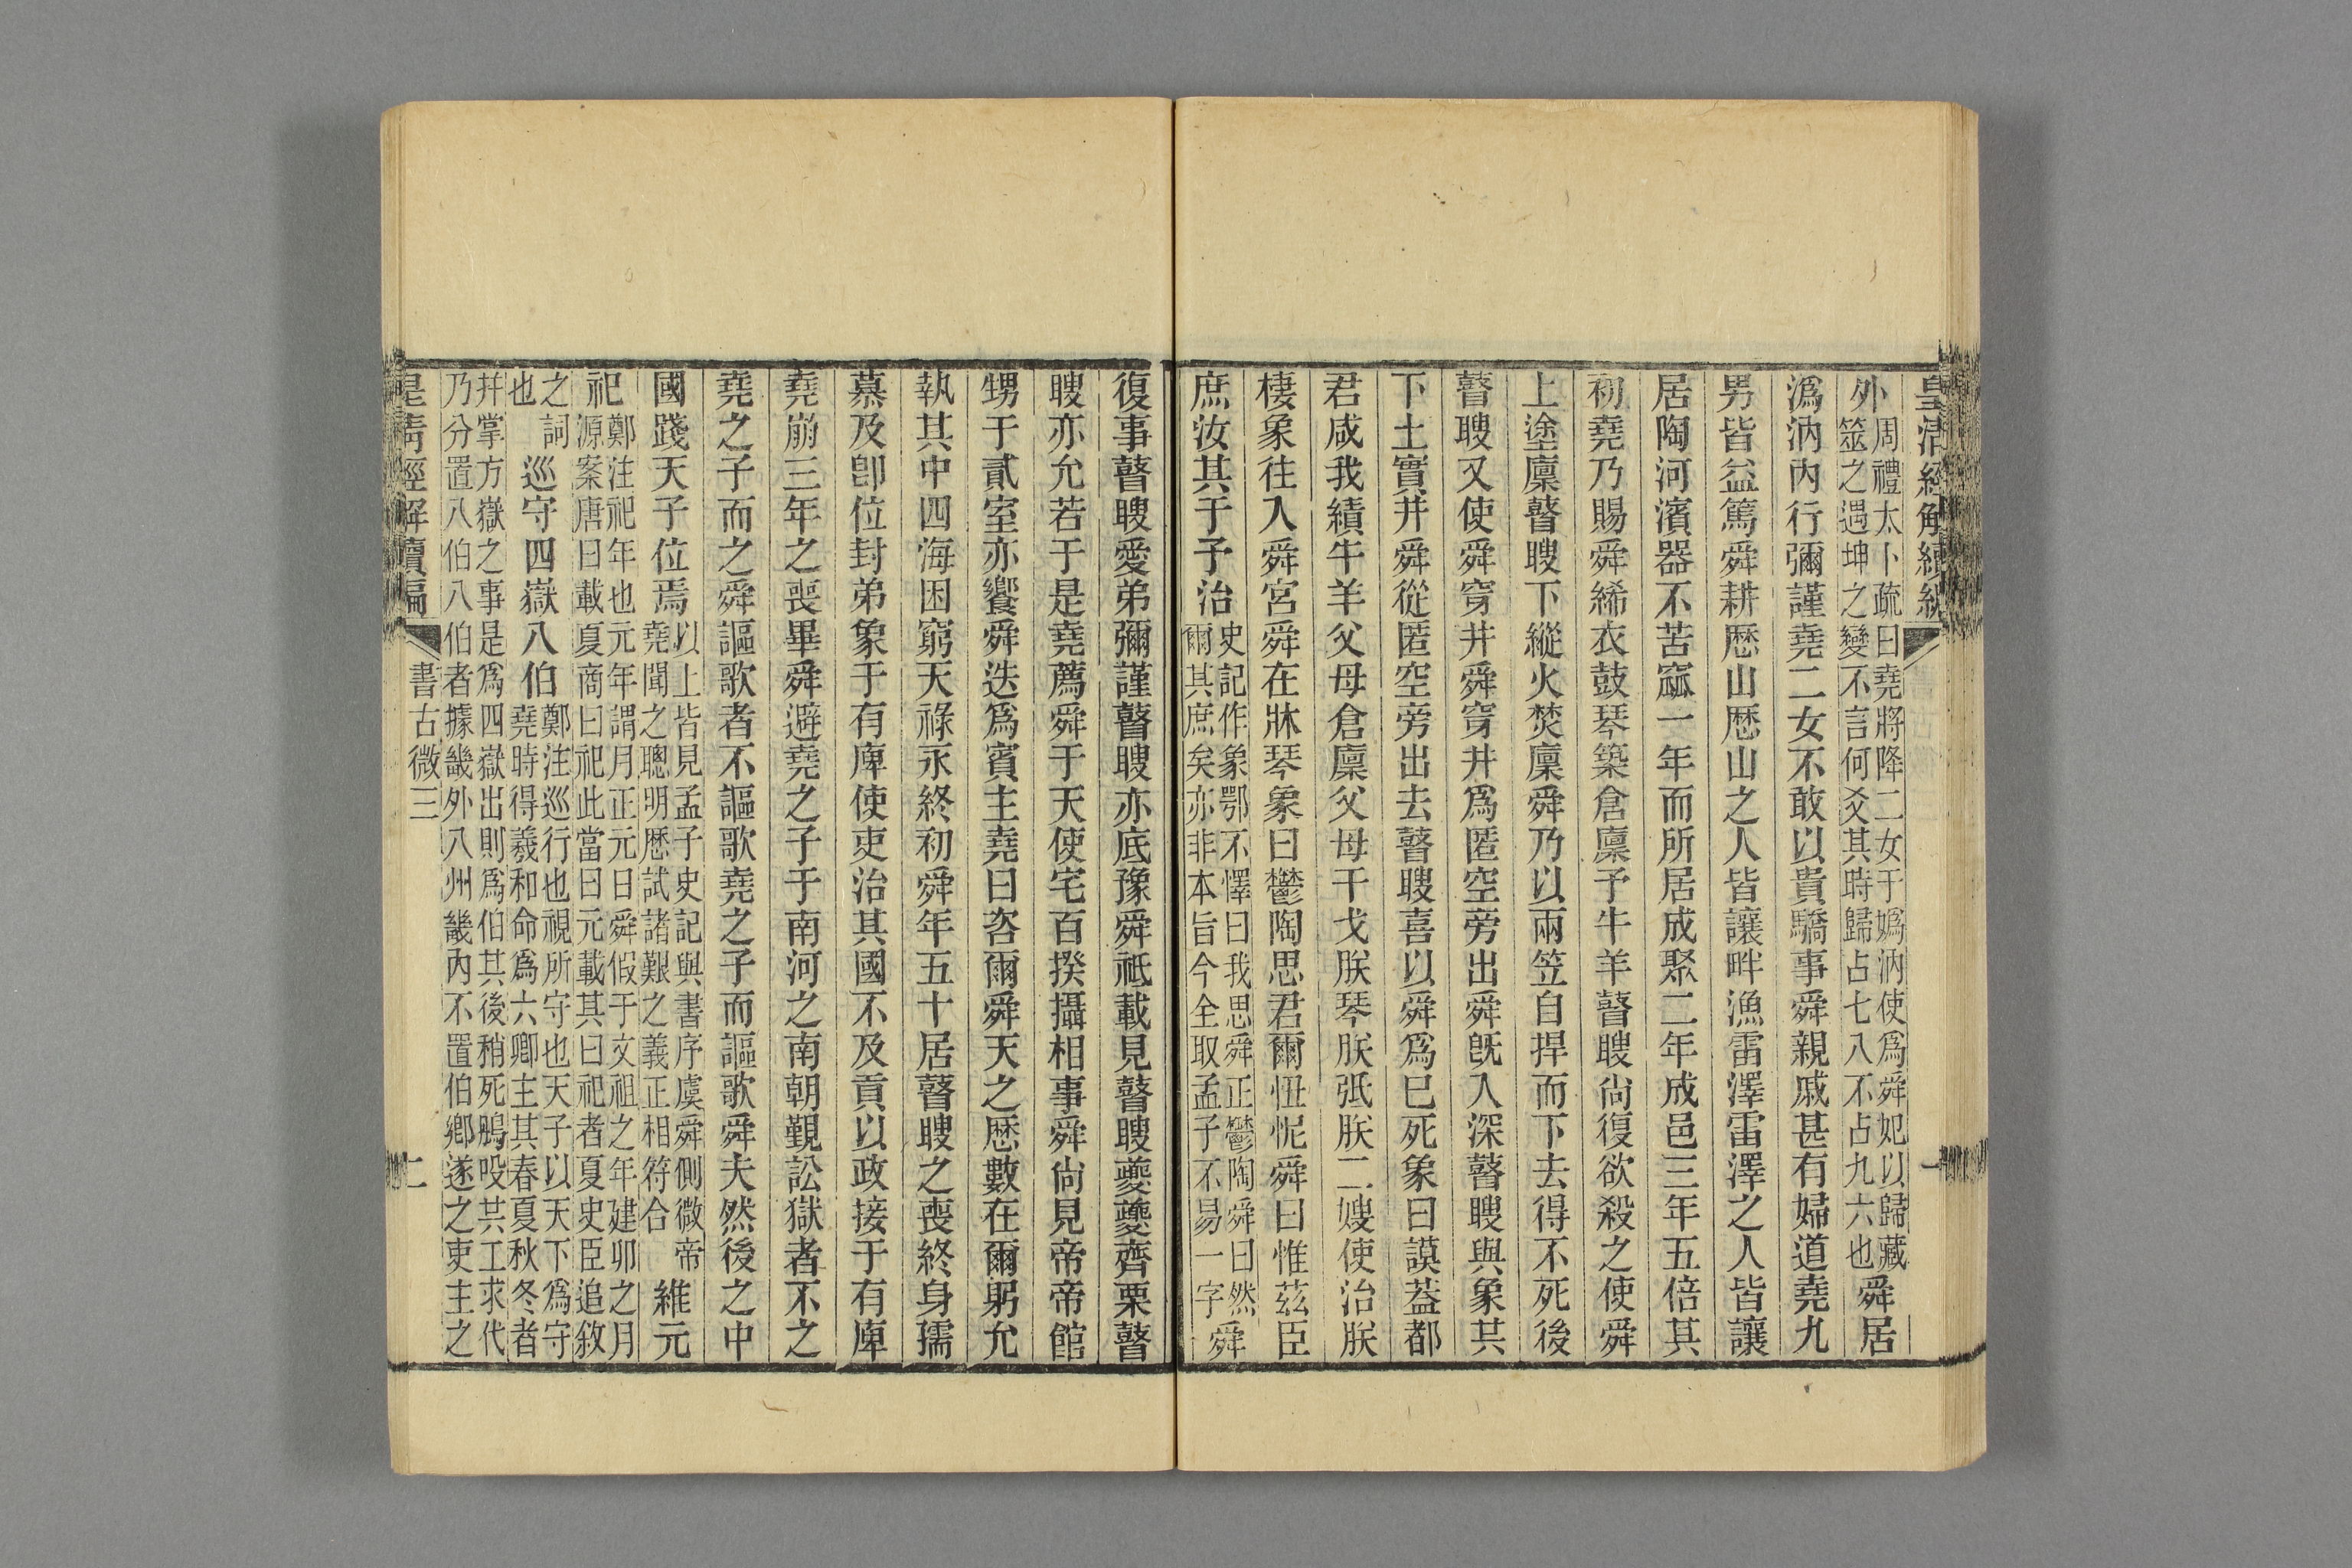 皇清經解續編
一
外周禮太卜疏曰堯將降二女于嬀汭使爲舜妃以歸藏筮之遇坤之變不言何爻其時歸占七八不占九六也舜居
溈汭內行彌謹堯二女不敢以貴驕事舜親戚甚有婦道堯九
男皆益篤舜耕歷山歷山之人皆讓畔漁雷澤雷澤之人皆讓
居陶河濱器不苦窳一年而所居成聚二年成邑三年五倍其
初堯乃賜舜絺衣鼓琴築倉廩予牛羊瞽瞍尙復欲殺之使舜
上塗廩瞽瞍下縱火焚廩舜乃以兩笠自捍而下去得不死後
瞽瞍又使舜穿井舜穿井爲匿空旁出舜旣入深瞽瞍與象共
下土實井舜從匿空旁出去瞽瞍喜以舜爲已死象曰謨蓋都
君咸我績牛羊父母倉廩父母干戈朕琴朕弤朕二嫂使治朕
棲象往入舜宮舜在牀琴象曰鬱陶思君爾忸怩舜曰惟茲臣
庶汝其于予治史記作象鄂不懌曰我思舜正鬱陶舜曰然爾其庶矣亦非本旨今全取孟子不易一字舜
復事瞽瞍愛弟彌謹瞽瞍亦底豫舜祗載見瞽瞍夔夔齊栗瞽
瞍亦允若于是堯薦舜于天使宅百揆攝相事舜尙見帝帝館
甥于貳室亦饗舜迭爲賓主堯曰咨爾舜天之歷數在爾躬允
執其中四海困窮天祿永終初舜年五十居瞽瞍之喪終身孺
慕及卽位封弟象于有庳使吏治其國不及貢以政接于有庳
堯崩三年之喪畢舜避堯之子于南河之南朝覲訟獄者不之
堯之子而之舜謳歌者不謳歌堯之子而謳歌舜夫然後之中
國踐天子位焉以上皆見孟子史記與書序虞舜側微帝堯聞之聰明歷試諸艱之義正相符合維元
祀鄭注祀年也元年謂月正元日舜假于文祖之年建卯之月源案唐曰載夏商曰祀此當曰元載其曰祀者夏史臣追敘
之詞也巡守四嶽八伯鄭注巡行也視所守也天子以天下爲守堯時得羲和命爲六卿主其春夏秋冬者
幷掌方嶽之事是爲四嶽出則爲伯其後稍死鴅吺共工求代乃分置八伯八伯者據畿外八州畿內不置伯鄉遂之吏主之
皇清經解續編
書古微三
二